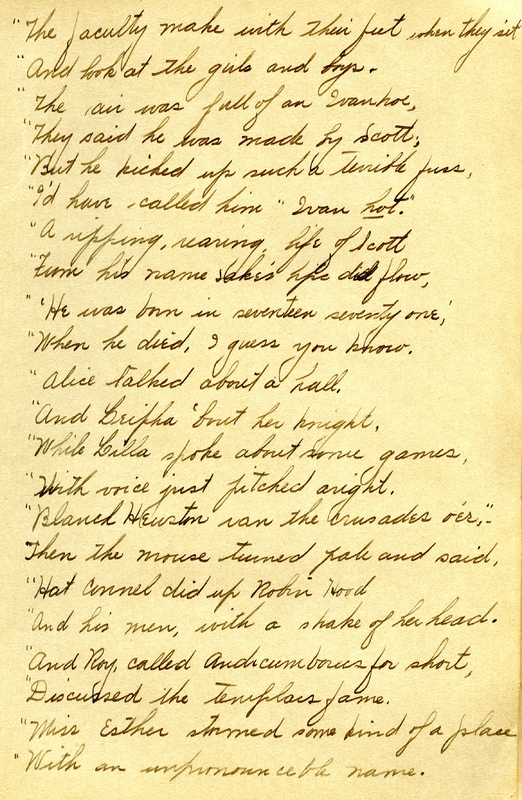 "The faculty make with their feet when they sit
"And look at the girls and boys.
"The air was full of an Ivanhoe,
"They said he was made by Scott;
"But he kicked up such a terrible fuss,
"I'd have called him "Ivan hot."
"A ripping, rearing, life of Scott
"From his name sake's lips did flow,
"'He was born in seventeen seventy one,'
"When he died, I guess you know.
"Alice talked about a hall,
"And Leipha 'bout her knight,
"While Lilla spoke about some games,
"With voice just pitched aright.
"Blanch Hewston ran the crusades o'er,"
Then the mouse turned pale and said,
"Hat Connel did up Robin Hood
"And his men, with a shake of her head.
"And Roy, called for short,
"Discussed the templars fame.
"Miss Esther stormed some kind of a place
"With an unpronounceable name.